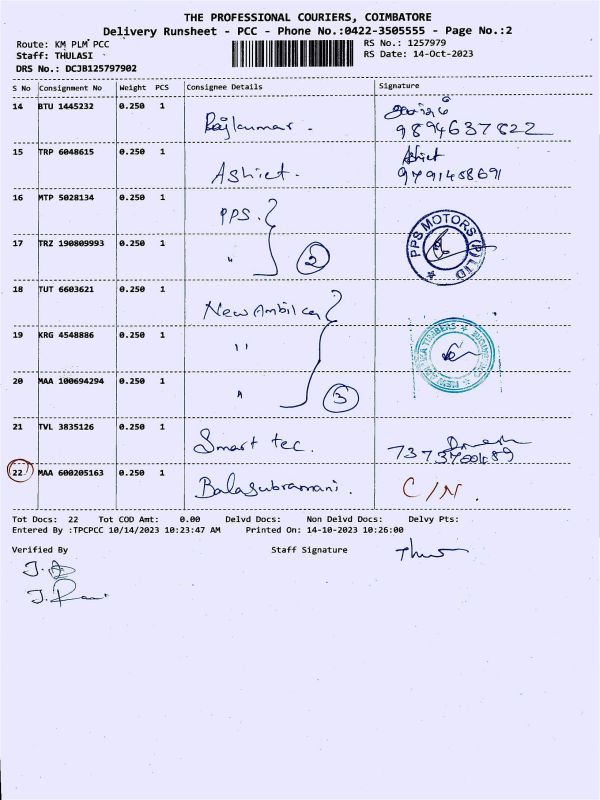 THE PROFESSIONAL COURIERS, COIMBATORE
Delivery Runsheet - PCC - Phone No.:0422-3505555 - Page No.:2
Route: KM PLM PCC
RS No.: 1257979
Staff: THULASI
RS Date: 14-Oct-2023
DRS No.: DCJB125797902
S No Consignment No Weight PCS Consignee Details Signature
14 BTU 1445232 0.250 1 Rajkumar. 9894637822
15 TRP 6048615 0.250 1 Ashiet. Ashiet 9791458691
16 MTP 5028134 0.250 1 PPS.
17 TRZ 190809993 0.250 1 " 2 PPS MOTORS (P) LTD
18 TUT 6603621 0.250 1 New Ambika
19 KRG 4548886 0.250 1 "
20 MAA 100694294 0.250 1 " 3
21 TVL 3835126 0.250 1 Smart tec. 7373700489
22 MAA 600205163 0.250 1 Balasubramani. C/N.
Tot Docs: 22 Tot COD Amt: 0.00 Delvd Docs: Non Delvd Docs: Delvy Pts:
Entered By :TPCPCC 10/14/2023 10:23:47 AM Printed On: 14-10-2023 10:26:00
Verified By Staff Signature